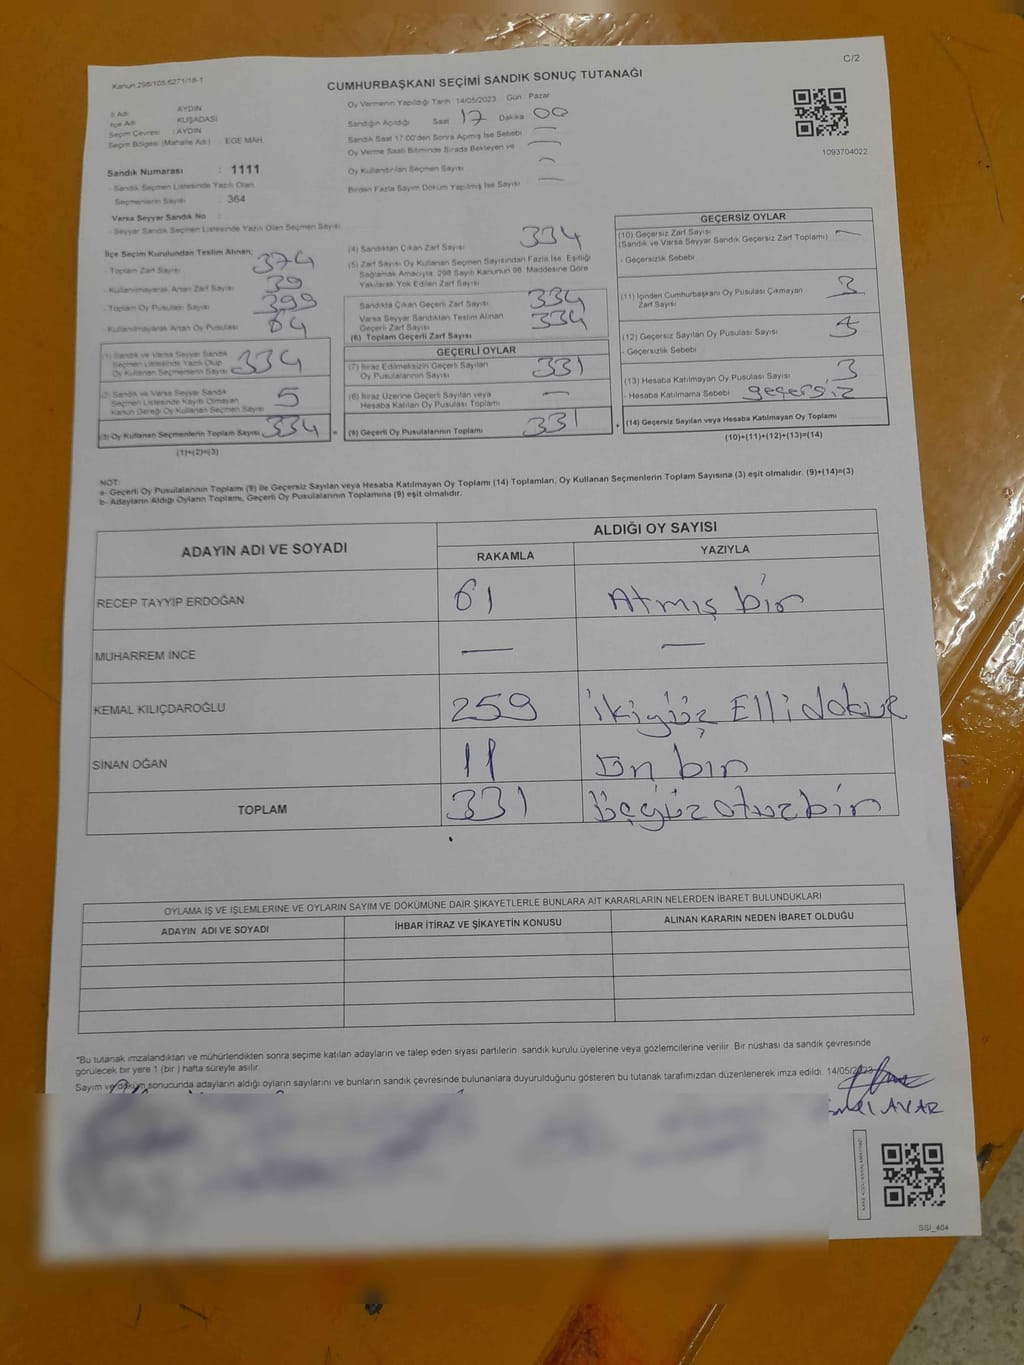 C/2
Kanun 298/105.6271/18-1
CUMHURBAŞKANI SEÇİMİ SANDIK SONUÇ TUTANAĞI
İl Adı : AYDIN
İlçe Adı : KUŞADASI
Seçim Çevresi : AYDIN
Seçim Bölgesi (Mahalle Adı) : EGE MAH.
Oy Vermenin Yapıldığı Tarih :14/05/2023 Gün : Pazar
Sandığın Açıldığı Saat 17 Dakika 00
Sandık Saat 17:00'den Sonra Açılmış İse Sebebi —
Oy Verme Saati Bitiminde Sırada Bekleyen ve
Oy Kullandırılan Seçmen Sayısı —
Birden Fazla Sayım Döküm Yapılmış İse Sayısı —
1093704022
Sandık Numarası : 1111
- Sandık Seçmen Listesinde Yazılı Olan
Seçmenlerin Sayısı : 364
Varsa Seyyar Sandık No :
- Seyyar Sandık Seçmen Listesinde Yazılı Olan Seçmen Sayısı :
İlçe Seçim Kurulundan Teslim Alınan;
- Toplam Zarf Sayısı 374
- Kullanılmayarak Artan Zarf Sayısı 39
- Toplam Oy Pusulası Sayısı 399
- Kullanılmayarak Artan Oy Pusulası 64
(1) Sandık ve Varsa Seyyar Sandık
Seçmen Listesinde Yazılı Olup
Oy Kullanan Seçmenlerin Sayısı 334
(2) Sandık ve Varsa Seyyar Sandık
Seçmen Listesinde Kayıtlı Olmayan
Kanun Gereği Oy Kullanan Seçmen Sayısı 5
(3) Oy Kullanan Seçmenlerin Toplam Sayısı 334 =
(1)+(2)=(3)
(4) Sandıktan Çıkan Zarf Sayısı 334
(5) Zarf Sayısı Oy Kullanan Seçmen Sayısından Fazla İse, Eşitliği
Sağlamak Amacıyla, 298 Sayılı Kanunun 98. Maddesine Göre
Yakılarak Yok Edilen Zarf Sayısı
Sandıkta Çıkan Geçerli Zarf Sayısı 334
Varsa Seyyar Sandıktan Teslim Alınan
Geçerli Zarf Sayısı 334
(6) Toplam Geçerli Zarf Sayısı
GEÇERLİ OYLAR
(7) İtiraz Edilmeksizin Geçerli Sayılan
Oy Pusulalarının Sayısı 331
(8) İtiraz Üzerine Geçerli Sayılan veya
Hesaba Katılan Oy Pusulası Toplamı —
(9) Geçerli Oy Pusulalarının Toplamı 331 +
GEÇERSİZ OYLAR
(10) Geçersiz Zarf Sayısı —
(Sandık ve Varsa Seyyar Sandık Geçersiz Zarf Toplamı)
- Geçersizlik Sebebi
(11) İçinden Cumhurbaşkanı Oy Pusulası Çıkmayan 3
Zarf Sayısı
(12) Geçersiz Sayılan Oy Pusulası Sayısı
- Geçersizlik Sebebi
(13) Hesaba Katılmayan Oy Pusulası Sayısı 3
- Hesaba Katılmama Sebebi geçersiz
(14) Geçersiz Sayılan veya Hesaba Katılmayan Oy Toplamı
(10)+(11)+(12)+(13)=(14)
NOT:
a- Geçerli Oy Pusulalarının Toplamı (9) ile Geçersiz Sayılan veya Hesaba Katılmayan Oy Toplamı (14) Toplamları, Oy Kullanan Seçmenlerin Toplam Sayısına (3) eşit olmalıdır. (9)+(14)=(3)
b- Adayların Aldığı Oyların Toplamı, Geçerli Oy Pusulalarının Toplamına (9) eşit olmalıdır.
ADAYIN ADI VE SOYADI
ALDIĞI OY SAYISI
RAKAMLA YAZIYLA
RECEP TAYYİP ERDOĞAN 61 Atmış bir
MUHARREM İNCE — —
KEMAL KILIÇDAROĞLU 259 ikiyüz Elli dokuz
SİNAN OĞAN 11 On bir
TOPLAM 331 Üçyüz otuz bir
OYLAMA İŞ VE İŞLEMLERİNE VE OYLARIN SAYIM VE DÖKÜMÜNE DAİR ŞİKAYETLERLE BUNLARA AİT KARARLARIN NELERDEN İBARET BULUNDUKLARI
ADAYIN ADI VE SOYADI İHBAR İTİRAZ VE ŞİKAYETİN KONUSU ALINAN KARARIN NEDEN İBARET OLDUĞU
*Bu tutanak imzalandıktan ve mühürlendikten sonra seçime katılan adayların ve talep eden siyasi partilerin sandık kurulu üyelerine veya gözlemcilerine verilir. Bir nüshası da sandık çevresinde
görülecek bir yere 1 (bir ) hafta süreyle asılır.
Sayım ve döküm sonucunda adayların aldığı oyların sayılarını ve bunların sandık çevresinde bulunanlara duyurulduğunu gösteren bu tutanak tarafımızdan düzenlenerek imza edildi. 14/05/2023
AVAR
SSI_404